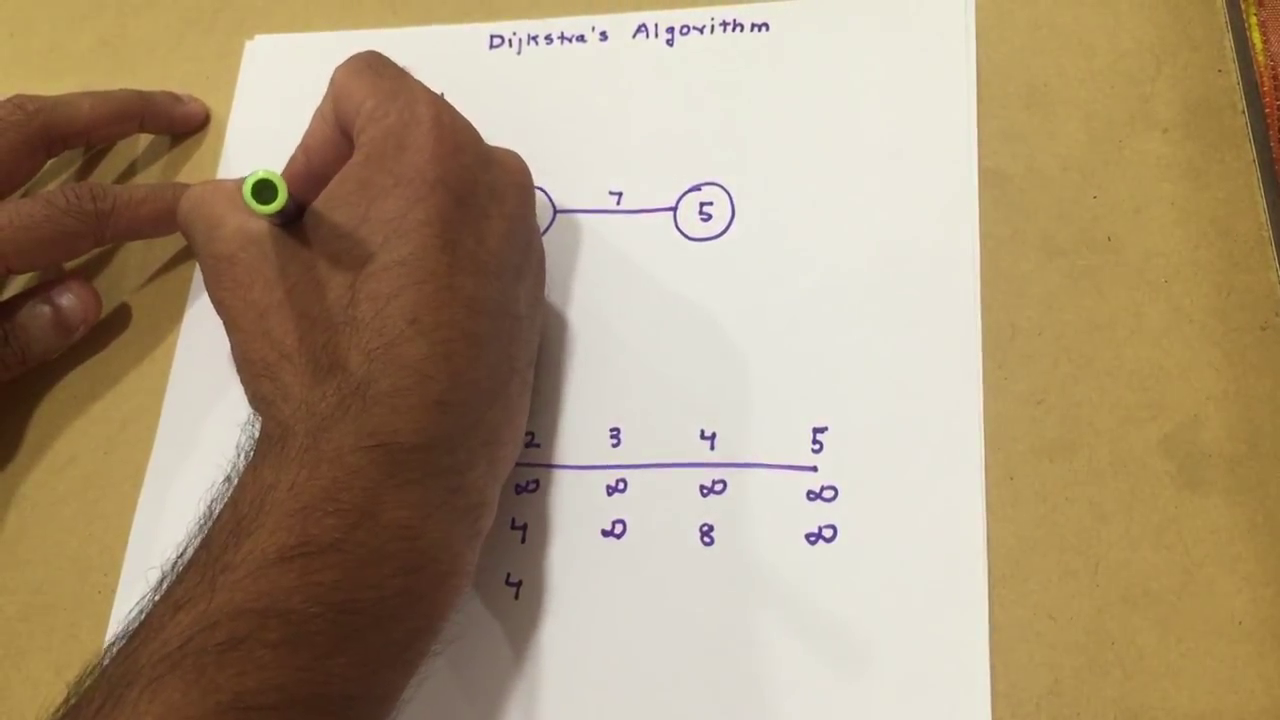 Dijkstra's Algorithm
7
5
2 3 4 5
∞ ∞ ∞ ∞
4 ∞ 8 ∞
4